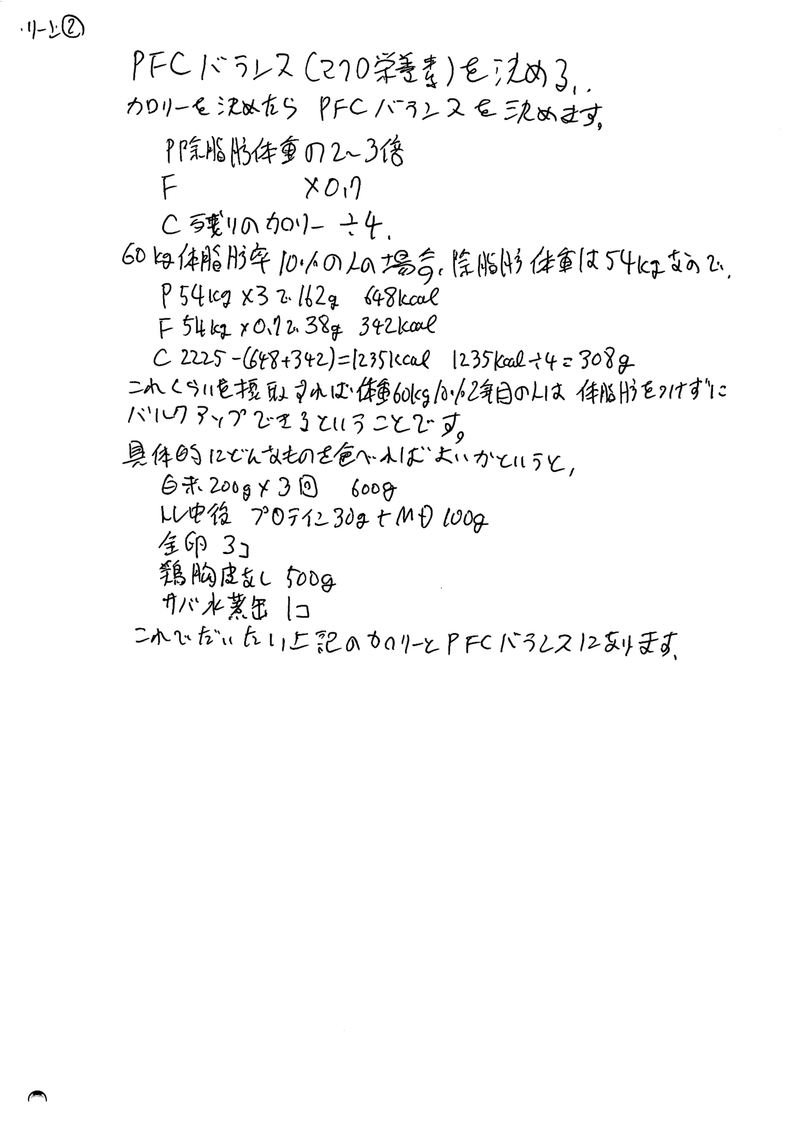 リーン②
PFCバランス(マクロ栄養素)を決める。
カロリーを決めたら PFCバランスを決めます。
P 除脂肪体重の2~3倍
F ×0.7
C 残りのカロリー ÷4.
60kg体脂肪率10%の人の場合、除脂肪体重は54kgなので、
P 54kg×3で162g 648kcal
F 54kg×0.7で38g 342kcal
C 2225-(648+342)=1235kcal 1235kcal÷4=308g
これくらいを摂取すれば体重60kg10%2年目の人は 体脂肪をつけずに
バルクアップできるということです。
具体的にどんなものを食べればよいかというと、
白米200g×3回 600g
トレ中後 プロテイン30g+MD 100g
全卵 3コ
鶏胸皮なし 500g
サバ水煮缶 1コ
これでだいたい上記のカロリーとPFCバランスになります。